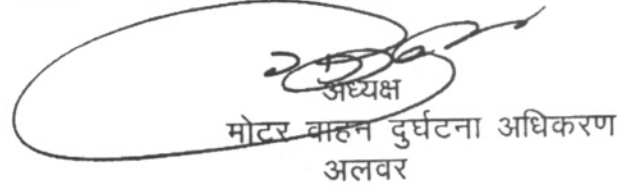 अध्यक्ष
मोटर वाहन दुर्घटना अधिकरण
अलवर